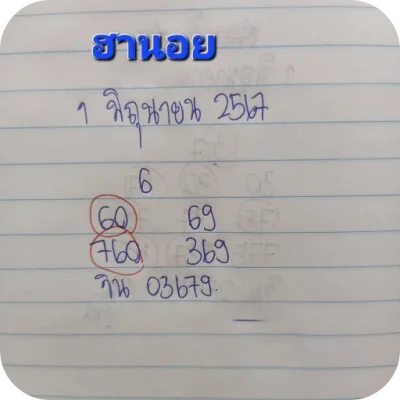 ฮานอย
1 มิถุนายน 2567
6
60 69
760 369
วิน 03679.